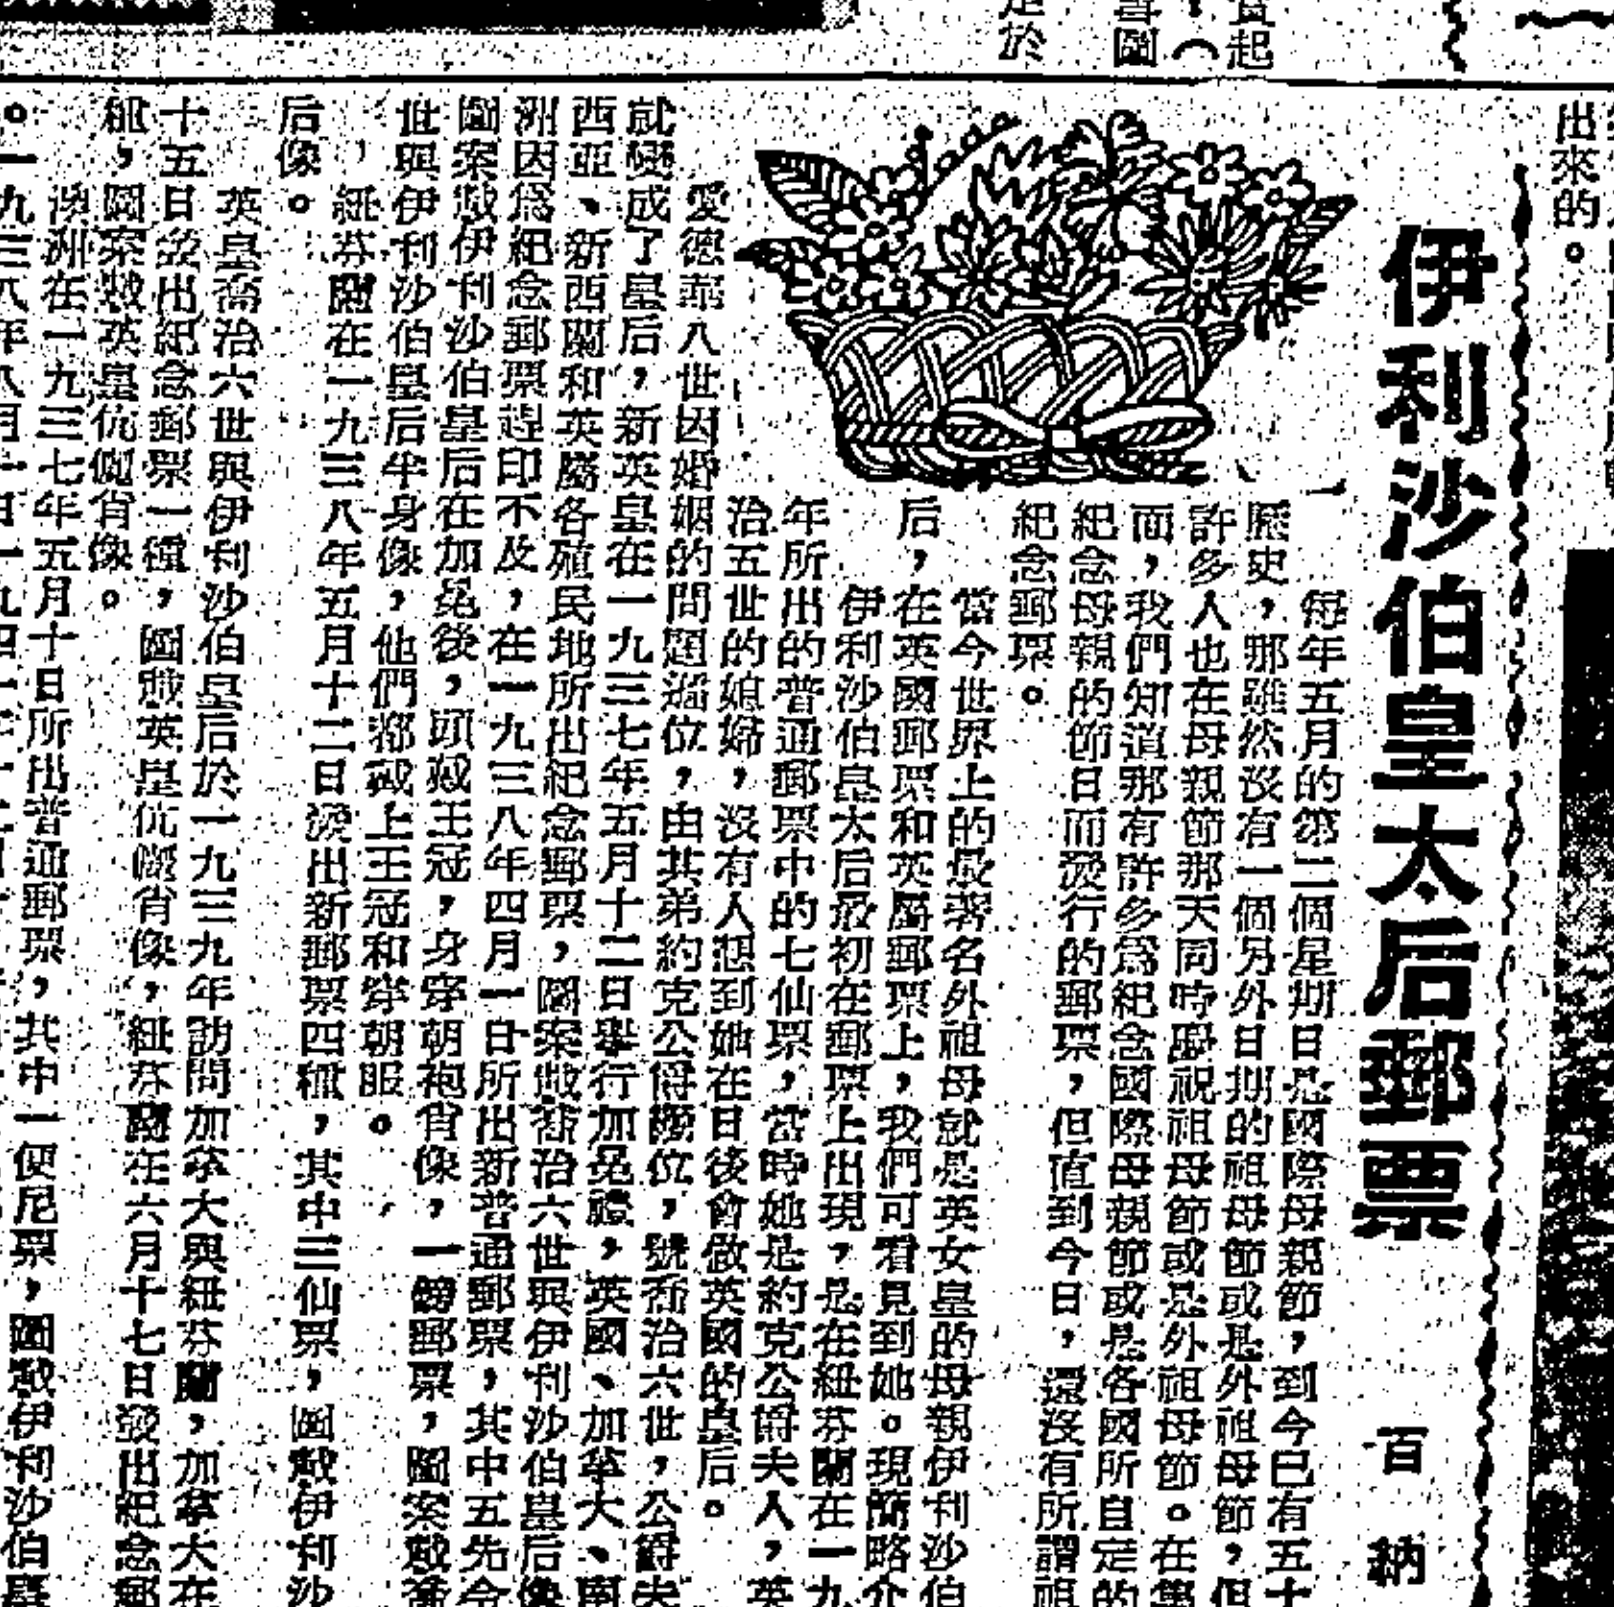 伊利沙伯皇太后郵票
百納
每年五月的第二個星期日是國際母親節，到今已有五十
歷史，那雖然沒有一個另外日期的祖母節或是外祖母節，但
許多人也在母親節那天同時慶祝祖母節或是外祖母節。在集
面，我們知道那有許多為紀念國際母親節或是各國所自定的
紀念母親的節日而發行的郵票，但直到今日，還沒有所謂祖
紀念郵票。
當今世界上的最著名外祖母就是英女皇的母親伊利沙伯
后，在英國郵票和英屬郵票上，我們可看見到她。現簡略介
伊利沙伯皇太后最初在郵票上出現，是在紐芬蘭在一九
年所出的普通郵票中的七仙票，當時她是約克公爵夫人，英
治五世的媳婦，沒有人想到她在日後會做英國的皇后。
愛德華八世因婚姻的問題遜位，由其弟約克公爵繼位，號喬治六世，公爵夫
就變成了皇后，新英皇在一九三七年五月十二日舉行加冕禮，英國、加拿大、南
西亞、新西蘭和英屬各殖民地所出紀念郵票，圖案戤喬治六世與伊利沙伯皇后像
洲因為紀念郵票趕印不及，在一九三八年四月一日所出新普通郵票，其中五先令
圖案戤伊利沙伯皇后在加冕後，頭戴王冠，身穿朝袍肖像，一鎊郵票，圖案戤喬
世與伊利沙伯皇后半身像，他們都戴上王冠和穿朝服。
紐芬蘭在一九三八年五月十二日發出新郵票四種，其中三仙票，圖戤伊利沙
后像。
英皇喬治六世與伊利沙伯皇后於一九三九年訪問加拿大與紐芬蘭，加拿大在
十五日發出紀念郵票一種，圖戤英皇伉儷肖像，紐芬蘭在六月十七日發出紀念郵
組，圖案戤英皇伉儷肖像。
澳洲在一九三七年五月十日所出普通郵票，其中一便尼票，圖戤伊利沙伯皇
。一九三八年八月
出來的。